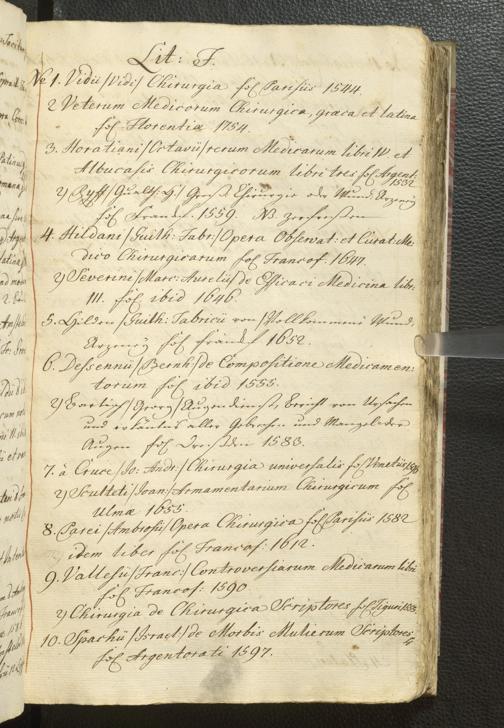 Lit: F.
No 1. Vidii /Vidi/ Chirurgia fol Parisiis 1544.
2 Veterum Medicorum Chirurgica, græca et latina
fol Florentiæ 1754.
3. Horatiani /Octavii/ rerum Medicarum libri IV et
Albucasis Chirurgicorum libri tres fol Argent:
1532
2) Ryff /Gualth: H:/ Groß Chirurgie oder Wund Arzeney
fol Francf. 1559. NB
4. Hildani /Guilh: Fabr:/ Opera Observat: et Curat: Me-
dico Chirurgicarum fol Francof. 1644.
2) Severini /Marc: Aurelii/ de Efficaci Medicina libr:
III. fol ibid 1646.
5. Hilden /Guilh: Fabricii von/ Vollkommene Wund.
Arzeney fol 1652.
6. Dessennii /Bernh:/ de Compositione Medicamen-
torum fol ibid 1555.
2) Bartisch /Georg/ Augendienst, Bericht von Ursachen
und aller Gebrechen und Mangel der
Augen fol Dresden 1583.
7. à Cruce /Jo: Andr:/ Chirurgia universalis fol Venetiis
2) Sculteti /Joan/ Armamentarium Chirurgicum fol
Ulmæ 1655.
8. Parei /Ambrosii/ Opera Chirurgica fol Parisiis 1582
idem liber fol Francof: 1612.
9. Vallesii /Franc:/ Controversiarum Medicarum libri
fol Francof: 1590
2) Chirurgia de Chirurgica Scriptores fol Tiguri
10. Spachii /Israel/ de Morbis Mulierum Scriptores
fol Argentorati 1597.